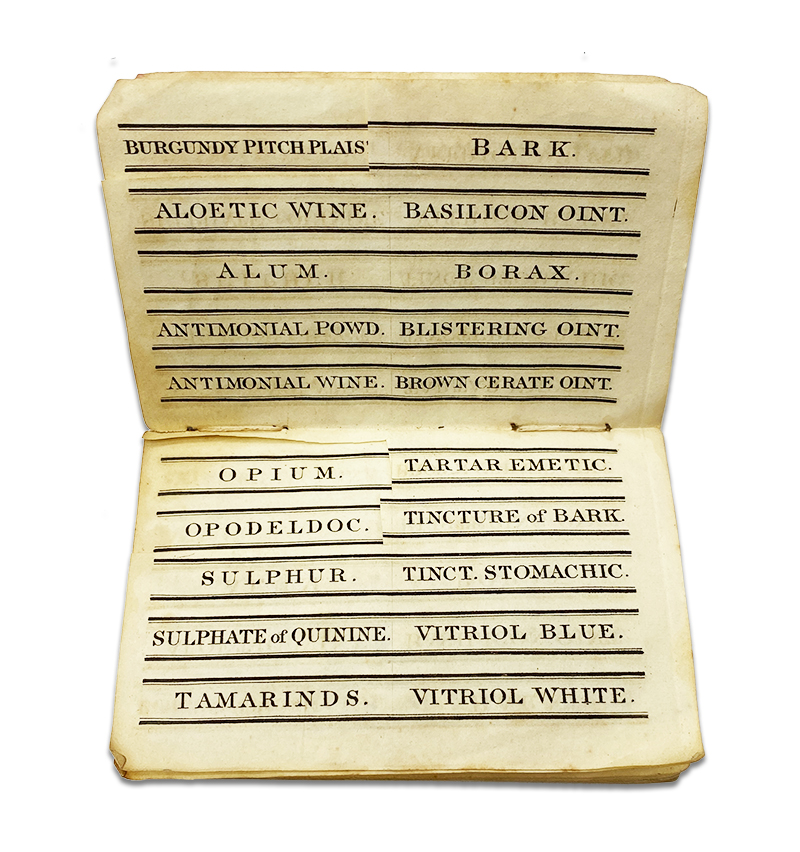 BURGUNDY PITCH PLAIS'
BARK.
ALOETIC WINE.
BASILICON OINT.
ALUM.
BORAX.
ANTIMONIAL POWD.
BLISTERING OINT.
ANTIMONIAL WINE.
BROWN CERATE OINT.
OPIUM.
TARTAR EMETIC.
OPODELDOC.
TINCTURE of BARK.
SULPHUR.
TINCT. STOMACHIC.
SULPHATE of QUININE.
VITRIOL BLUE.
TAMARINDS.
VITRIOL WHITE.